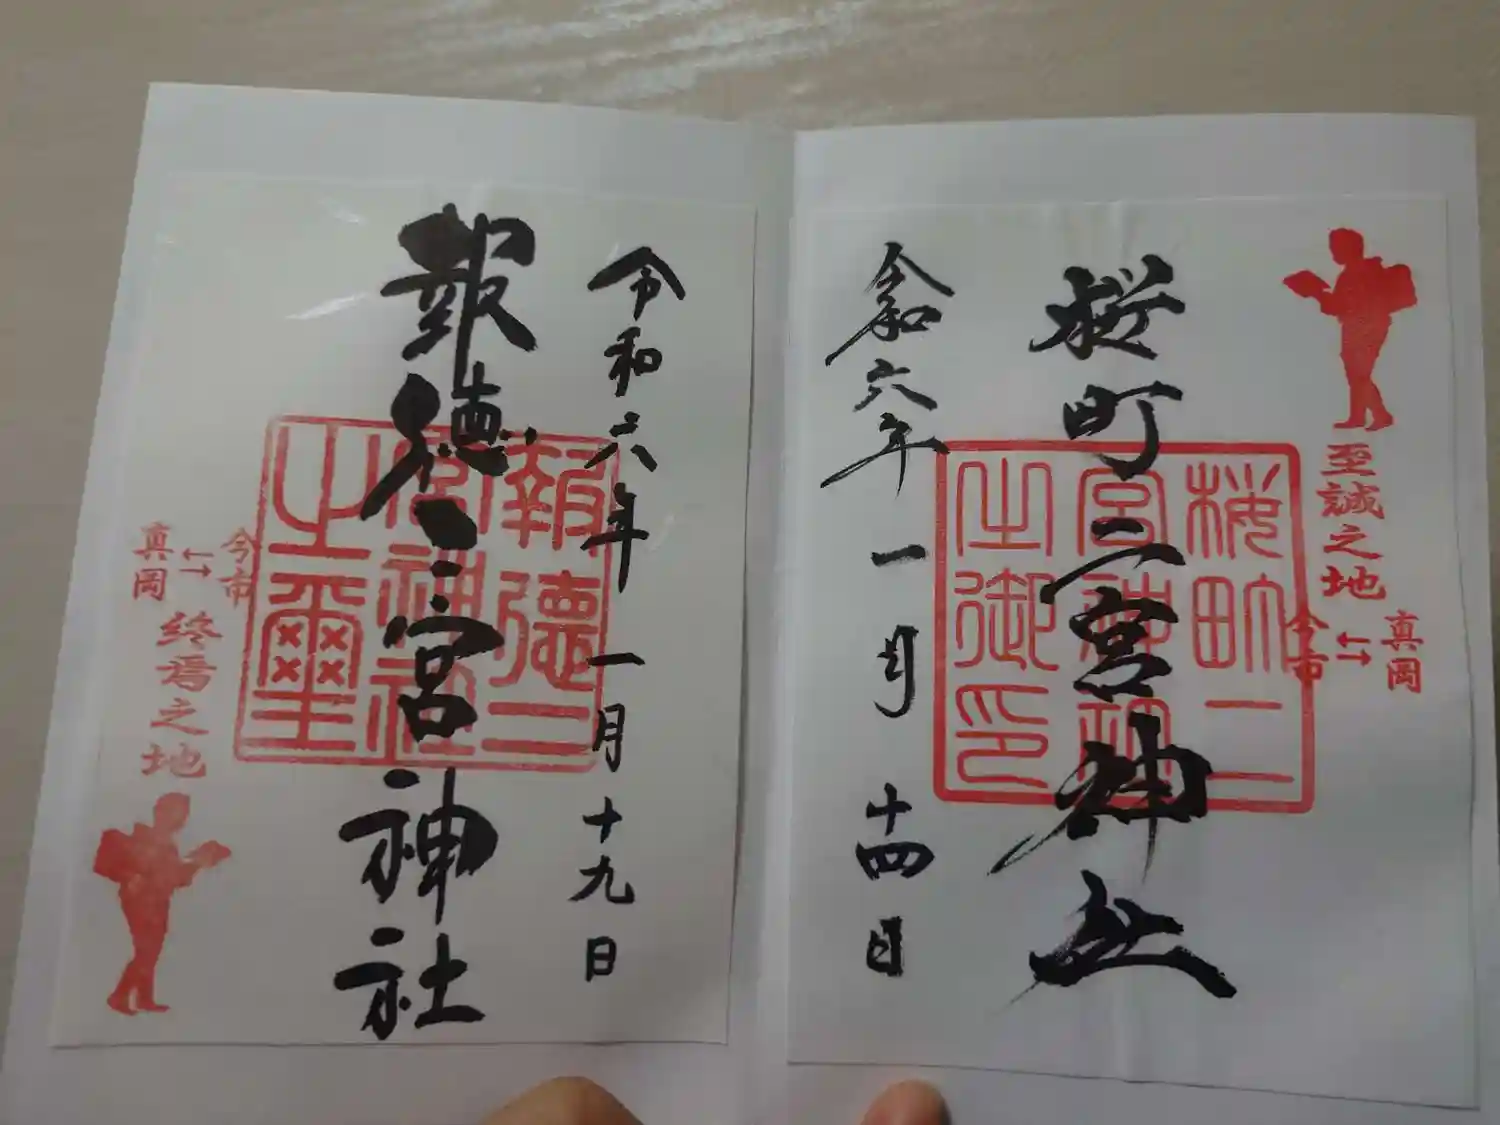 至誠之地
真岡
今市
桜町二宮神社
桜町二
宮神社
之御印
令和六年一月十四日
令和六年一月十九日
報徳二宮神社
報徳二
宮神社
之璽
今市
真岡
終焉之地